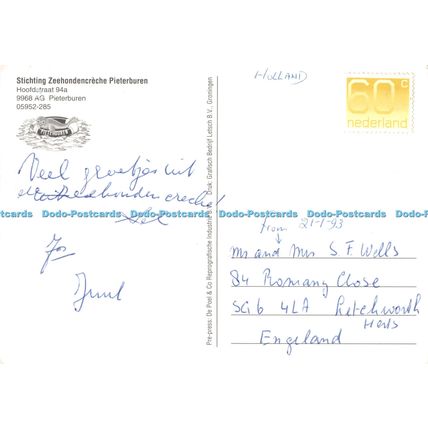 Stichting Zeehondencrèche Pieterburen
Hoofdstraat 94a
9968 AG Pieterburen
05952-285
PIETERBUREN
Veel groetjes uit
de Zeehondencreche!
Jos
HOLLAND
60 c
nederland
from 21-1-93
Mr and Mrs S F Wells
84 Romany Close
SG6 4LA Letchworth
Herts
England
Pre-press: De Poel & Co Reprografische Industrie
Druk: Grafisch Bedrijf Letsch B.V., Groningen
Dodo-Postcards Dodo-Postcards Dodo-Postcards Dodo-Postcards Dodo-Postcards